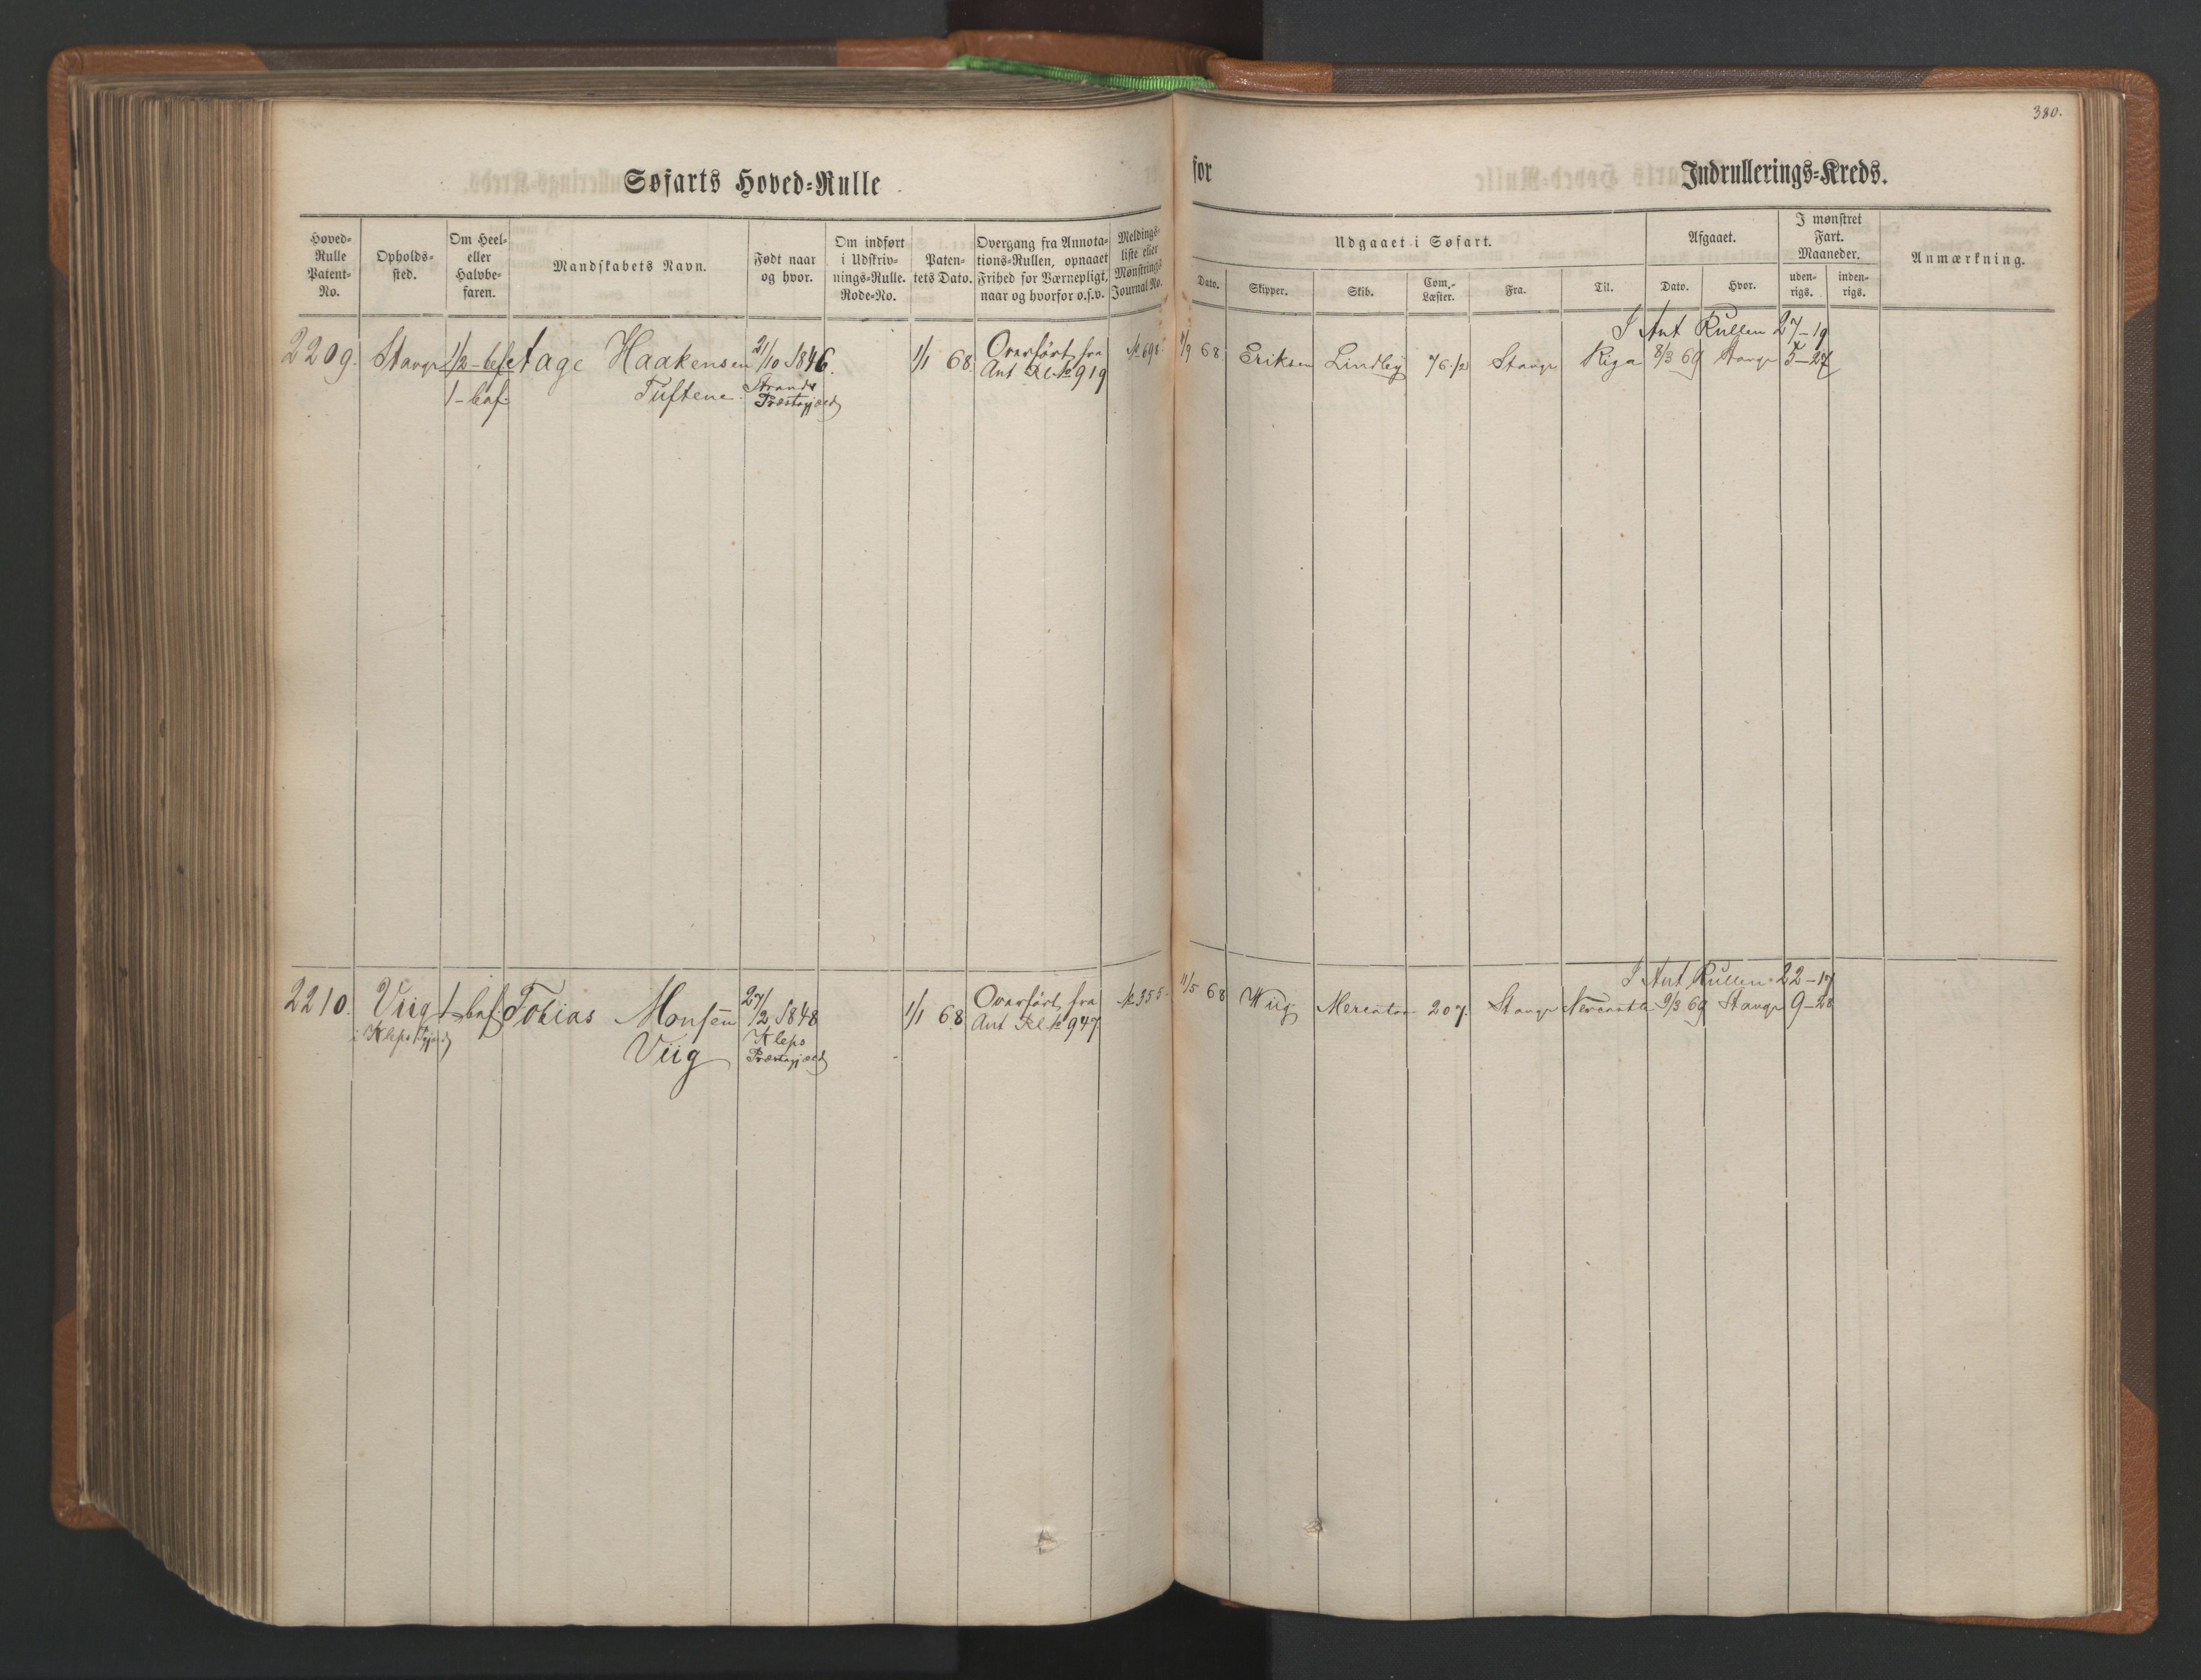 380.
Søfarts Hoved=Rulle
for Indrullerings=Kreds.
Hoved=Rulle Patent=No.
Opholds=sted.
Om Heel= eller Halvbe=faren.
Mandskabets Navn.
Født naar og hvor.
Om indført i Udskriv=nings=Rulle. Rode=No.
Paten=tets Dato.
Overgang fra Annota=tions=Rullen, opnaaet Frihed for Værnepligt, naar og hvorfor o.s.v.
Meldings=liste eller Mønstrings Journal No.
Udgaaet i Søfart.
Dato.
Skipper.
Skib.
Com.=Læster.
Fra.
Til.
Afgaaet.
Dato.
Hvor.
I mønstret Fart. Maaneder.
uden=rigs.
inden=rigs.
Anmærkning.
I Ant Rullen 27-19
2209. Stavgr 1/2-bef Aage Haakensen 21/10 1846. 1/1 68. Overført fra № 698. 7/9 68. Eriksen Lindley 76 1/2 Stavgr Riga 8/3 69 Stavgr 5-27
1-baf. Tuftene. Strands Præstegjæld Ant Rl. № 919
I Ant Rullen 22-17
2210. Viig 1-baf. Tobias Monsen 27/2 1848 1/1 68. Overført fra № 355 11/5 68 Wiig Mercator 207. Stavgr Newcastle 9/3 69 Stavgr 9-28
i Kleps Pgjæld Viig Kleps Præstegjæld Ant Rl. № 947